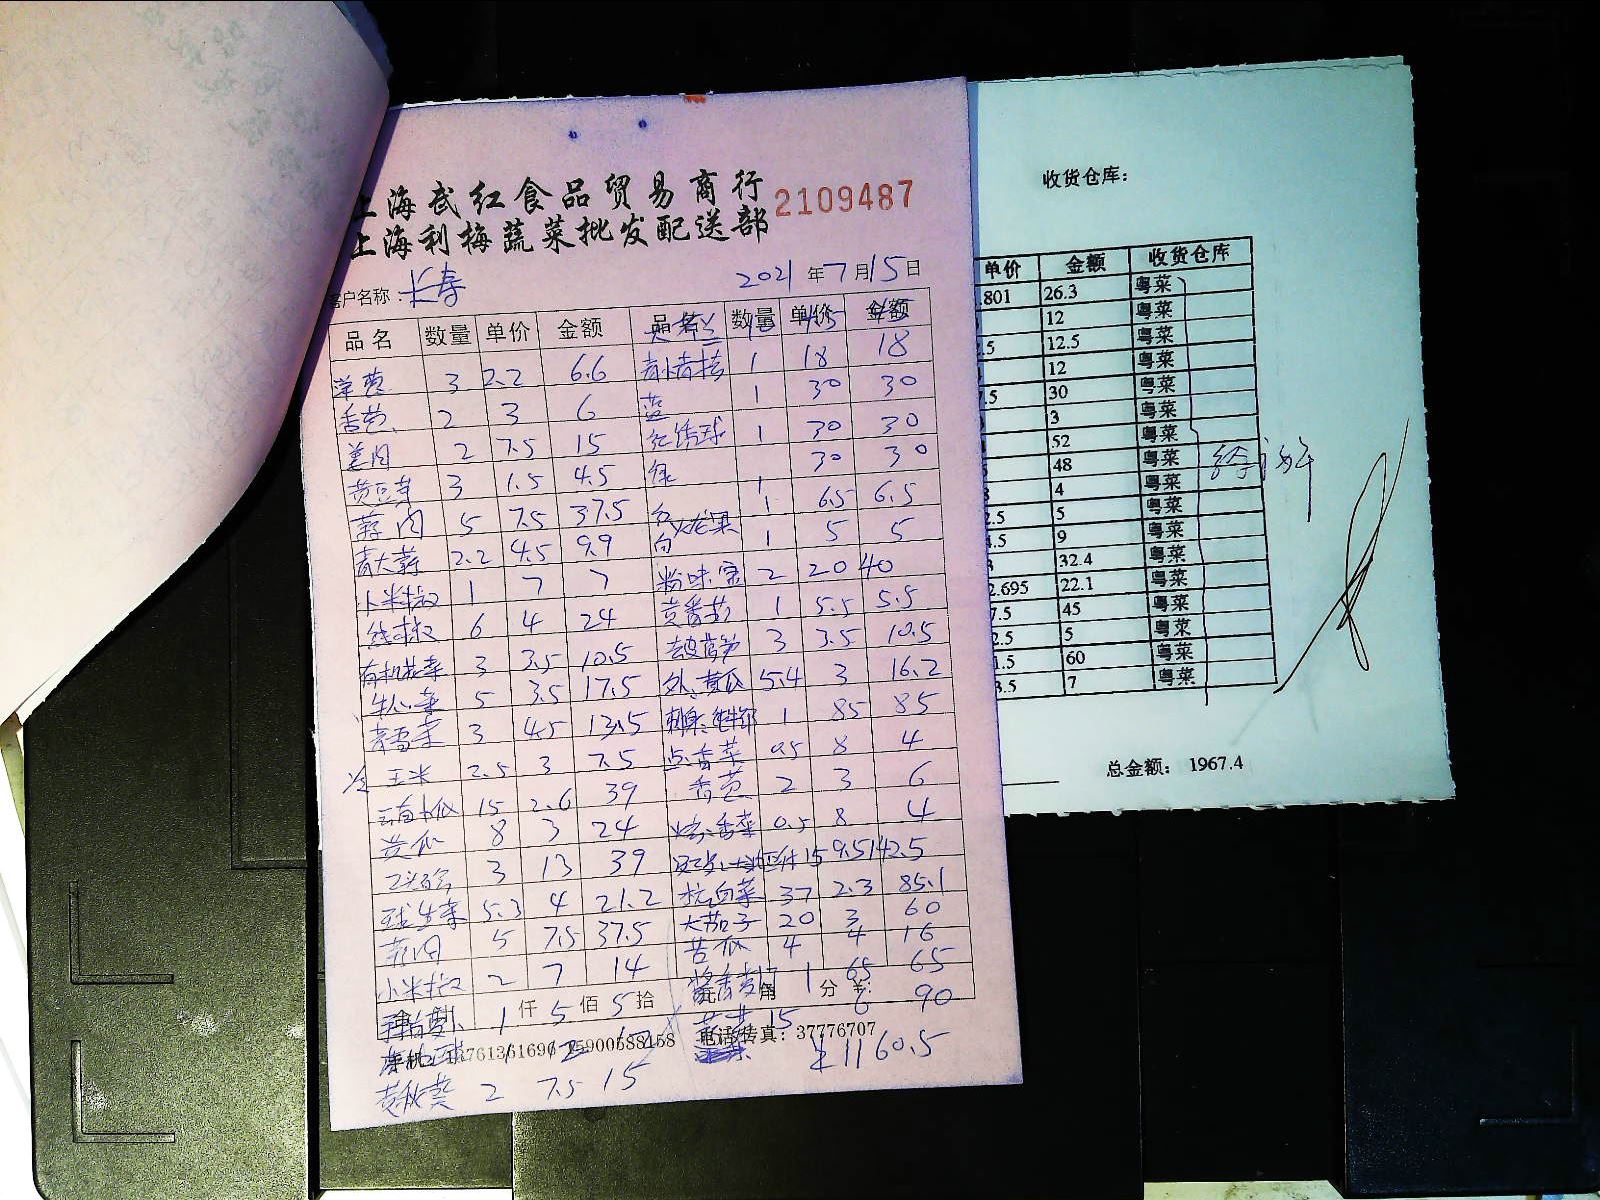 上海武红食品贸易商行
上海利梅蔬菜批发配送部
2109487
客户名称：长寿
2021年7月15日
品名 数量 单价 金额 品名 数量 单价 金额
洋葱 3 2.2 6.6
1 18 18
香葱 2 3 6
蓝 1 30 30
姜肉 2 7.5 15
红绣球 1 30 30
黄豆芽 3 1.5 4.5
绿 1 30 30
蒜肉 5 7.5 37.5
红 1 6.5 6.5
青大蒜 2.2 4.5 9.9
白火龙果 1 5 5
小米椒 1 7 7
粉味宝 2 20 40
线椒 6 4 24
黄番茄 1 5.5 5.5
有机花菜 3 3.5 10.5
去皮莴笋 3 3.5 10.5
牛心菜 5 3.5 17.5
外、黄瓜 5.4 3 16.2
3 4.5 13.5
刺身、 1 85 85
冷 玉米 2.5 3 7.5
点、香菜 0.5 8 4
云南木瓜 15 2.6 39
香葱 2 3 6
黄瓜 8 3 24
香菜 0.5 8 4
3 13 39
15 9.5 142.5
球生菜 5.3 4 21.2
杭白菜 37 2.3 85.1
蒜肉 5 7.5 37.5
大茄子 20 3 60
苦瓜 4 4 16
小米椒 2 7 14
1 65 65
1 仟 5 佰 5 拾 元 角 分 ￥:
15 6 90
13761361696 15900588458 电话/传真：37776707
黄秋葵 2 7.5 15
￥1160.5
收货仓库：
单价 金额 收货仓库
.801 26.3 粤菜
12 粤菜
.5 12.5 粤菜
12 粤菜
7.5 30 粤菜
3 粤菜
52 粤菜
48 粤菜
4 粤菜
2.5 5 粤菜
4.5 9 粤菜
32.4 粤菜
2.695 22.1 粤菜
7.5 45 粤菜
2.5 5 粤菜
1.5 60 粤菜
3.5 7 粤菜
总金额： 1967.4